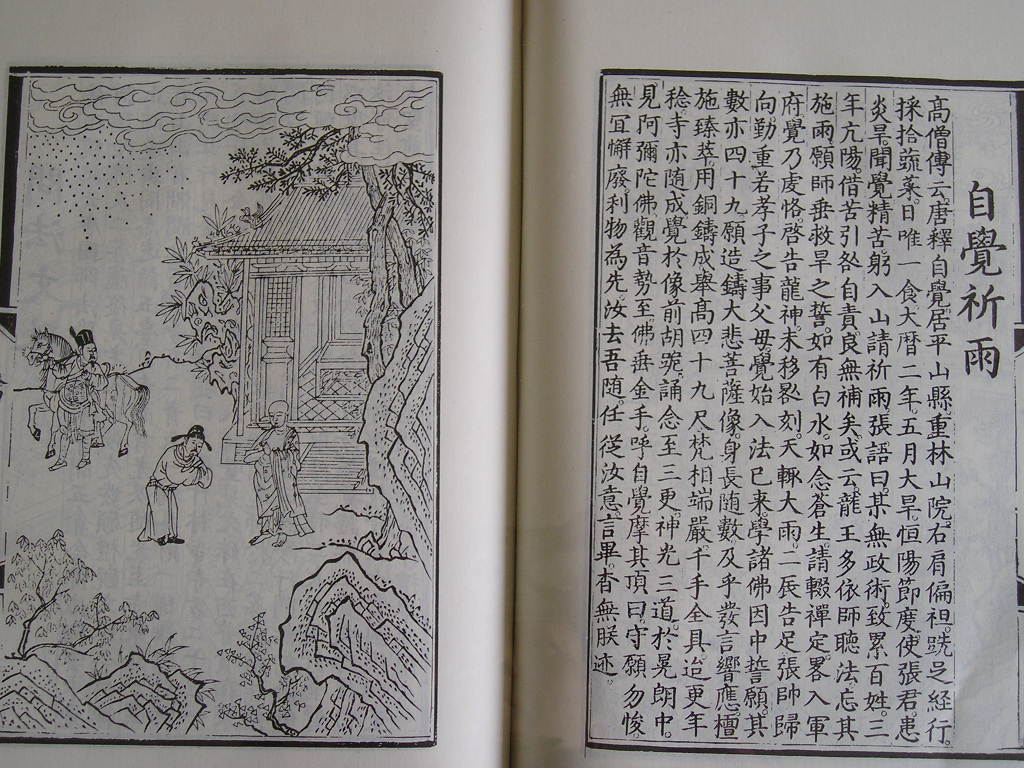 自覺祈雨
高僧傳云。唐釋自覺。居平山縣重林山院。右肩偏袒。跣足經行。
採拾蔬菜。日唯一食。大曆二年。五月大旱。恒陽節度使張君患
炎旱。聞覺精苦。躬入山請祈雨。張語曰。某無政術。致累百姓。三
年亢陽。借苦引咎自責。良無補矣。或云。龍王多依師聽法。忘其
施雨。願師垂救旱之誓。如有白水。如念蒼生。請輟禪定。畧入軍
府。覺乃虔恪。啓告龍神。未移晷刻。天輒大雨。二辰告足。張帥歸
向。勤重若孝子之事父母。覺始入法已來。學諸佛因中誓願。其
數亦四十九。願造鑄大悲菩薩像。身長隨數。及乎發言響應。檀
施臻萃。用銅鑄成。舉高四十九尺。梵相端嚴。千手全具。迨更年
稔。寺亦隨成。覺於像前胡跪。誦念至三更。神光三道。於晃朗中。
見阿彌陀佛。觀音勢至。佛垂金手。呼自覺摩其頂曰。守願勿悛。
無宜懈廢。利物為先。汝去吾隨。任從汝意。言畢。杳無朕迹。